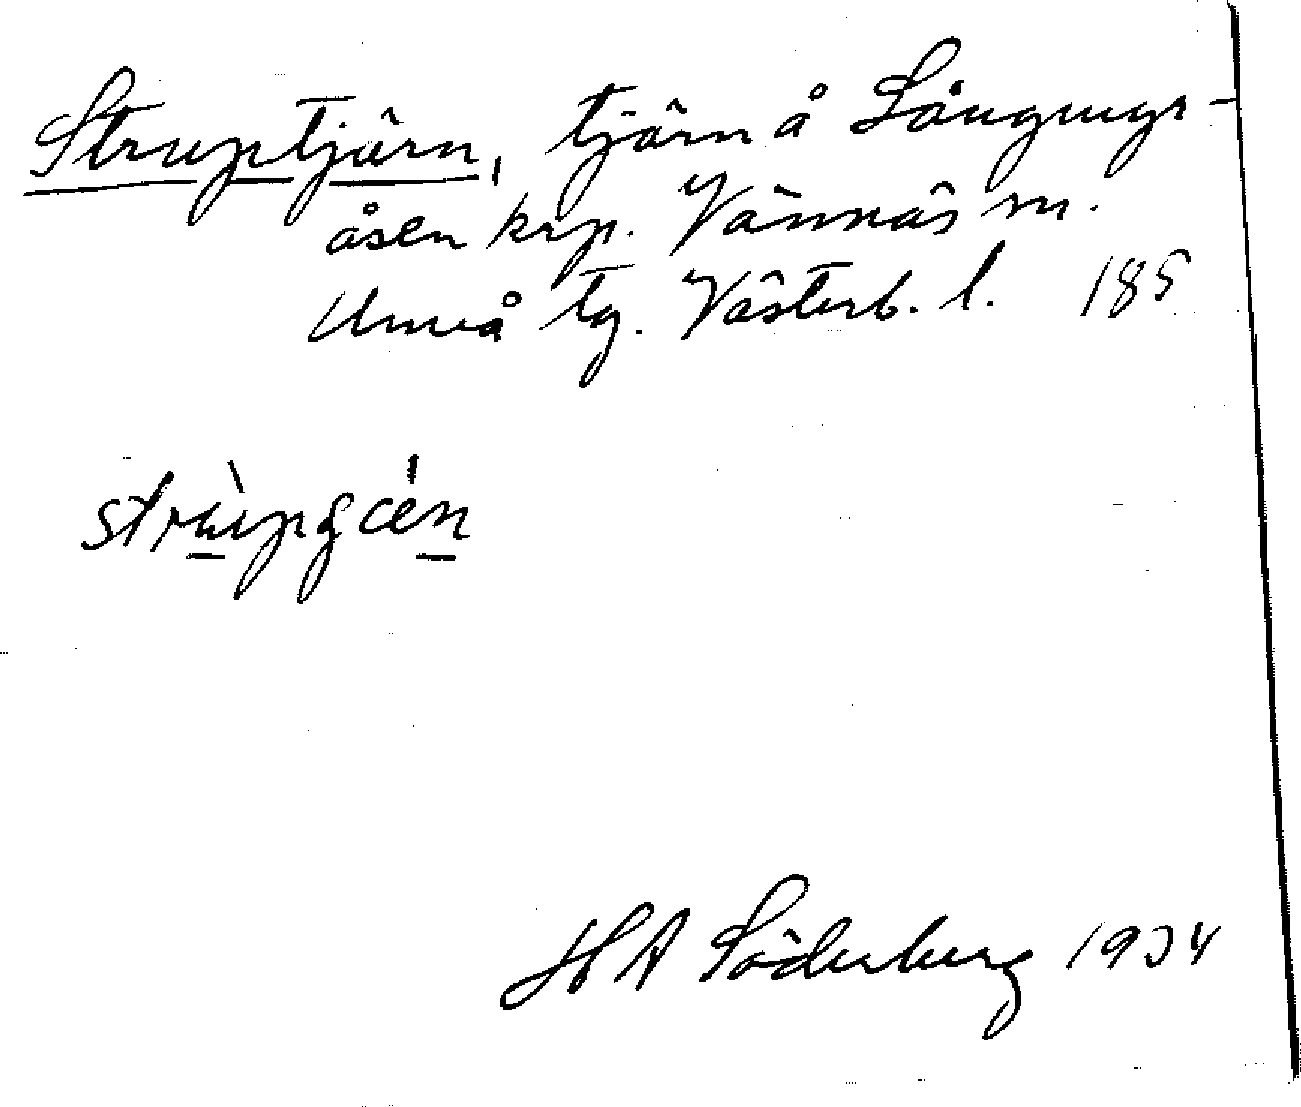 Struptjärn, tjärn å Långrygs-
åsen krp. Vännäs sn.
Umeå tg. Västerb. l. 185
H A Söderberg 1934